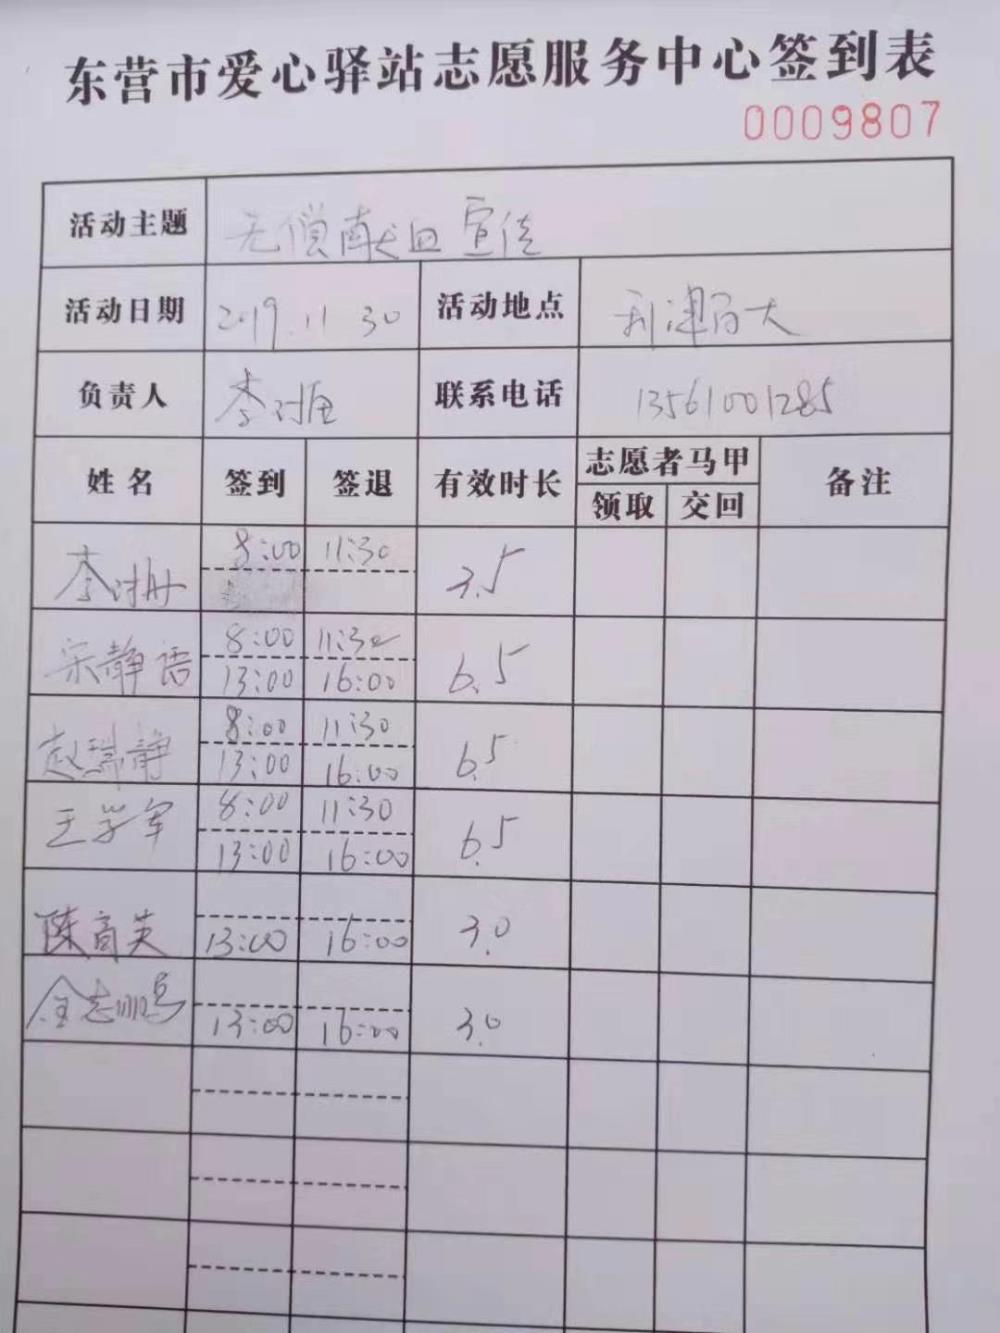 东营市爱心驿站志愿服务中心签到表
0009807
活动主题 无偿献血宣传
活动日期 2019.11 30 活动地点 利津百大
负责人 李 联系电话 13561001285
姓名 签到 签退 有效时长 志愿者马甲 备注
领取 交回
李 8:00 11:30 3.5
宋静语 8:00 11:30 6.5
13:00 16:00
赵瑞静 8:00 11:30 6.5
13:00 16:00
王学军 8:00 11:30 6.5
13:00 16:00
陈高英 13:00 16:00 3.0
金志鹏 13:00 16:00 3.0